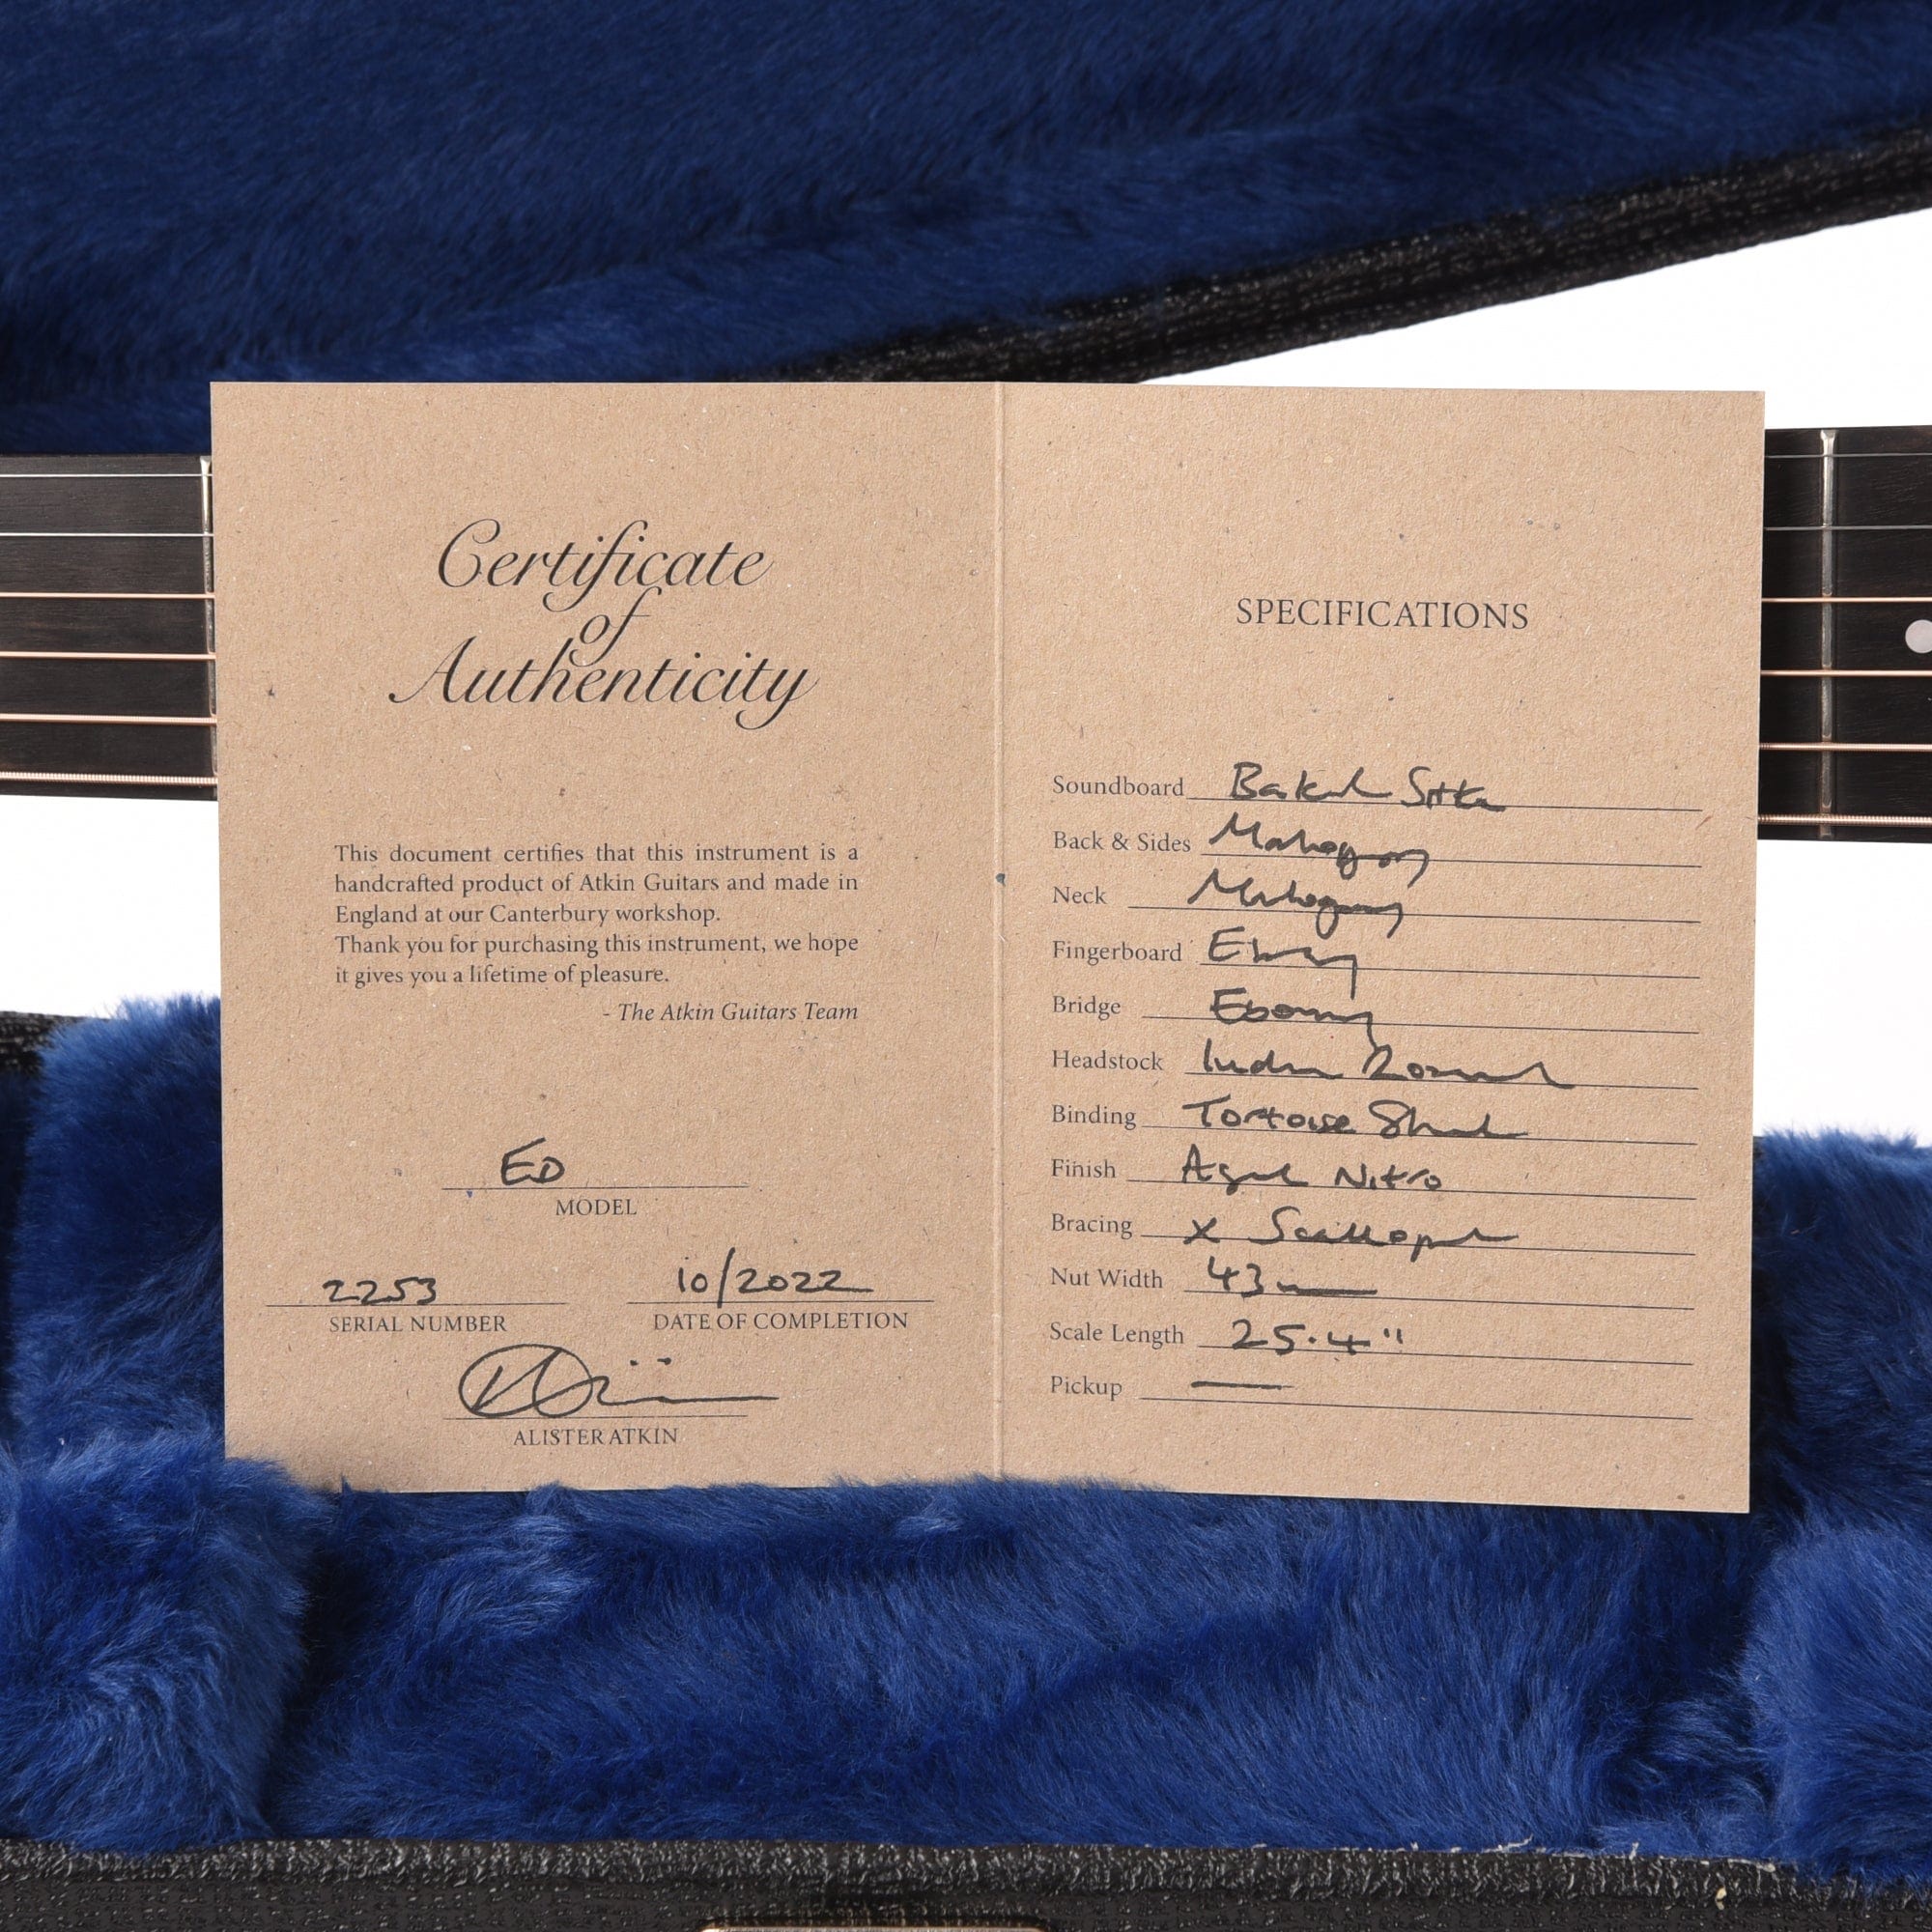 Certificate
of
Authenticity
This document certifies that this instrument is a
handcrafted product of Atkin Guitars and made in
England at our Canterbury workshop.
Thank you for purchasing this instrument, we hope
it gives you a lifetime of pleasure.
- The Atkin Guitars Team
ED
MODEL
2253
SERIAL NUMBER
10/2022
DATE OF COMPLETION
ALISTER ATKIN
SPECIFICATIONS
Soundboard Baked Sitka
Back & Sides Mahogany
Neck Mahogany
Fingerboard Ebony
Bridge Ebony
Headstock Indian Rosewood
Binding Tortoise Shell
Finish Aged Nitro
Bracing X Scalloped
Nut Width 43mm
Scale Length 25.4"
Pickup —